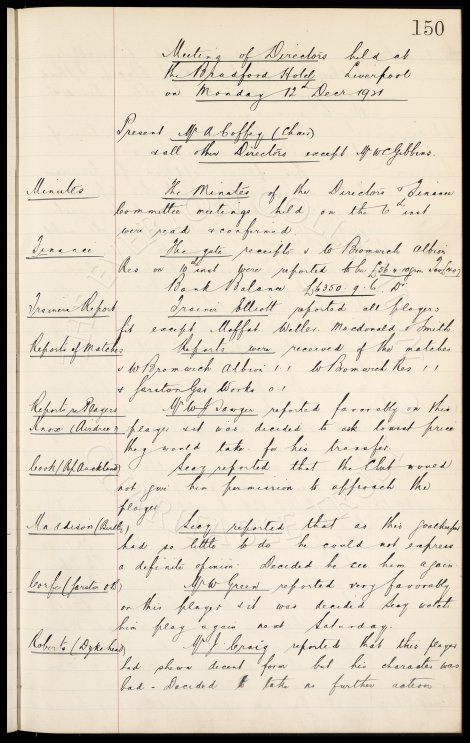 150
Meeting of Directors held at
the Bradford Hotel, Liverpool
on Monday 12th Decr 1921
Present Mr A Coffey (Chair)
& all other Directors except Mr W C Gibbins.
Minutes The Minutes of the Directors & Finance
Committee meetings held on the 6th inst
were read & confirmed.
Finance The gate receipts v W Bromwich Albion
Res on 10th inst were reported to be £56
Bank Balance £6350. 9. 6 Dr
Trainers Report Trainer Elliott reported all players
fit except Moffat Waller. Macdonald & Smith
Reports of Matches Reports were received of the matches
v W Bromwich Albion 1 : 1 W Bromwich Res 1 : 1
& Garston Gas Works 0 : 1
Reports re Players Mr W J Sawyer reported favorably on this
Knox (Airdrie) player & it was decided to ask lowest price
they would take for his transfer.
Cook (Bp Auckland) Secy reported that the Club would
not give him permission to approach the
player
Maddison Secy reported that as this goalkeeper
had so little to do he could not express
a definite opinion. Decided he see him again.
Corfe (Garston Mr W Green reported very favorably
on this player & it was decided Secy watch
him play again next Saturday.
Roberts (Dykehead) Mr J Craig reported that this player
had shewn decent form but his character was
bad - Decided to take no further action